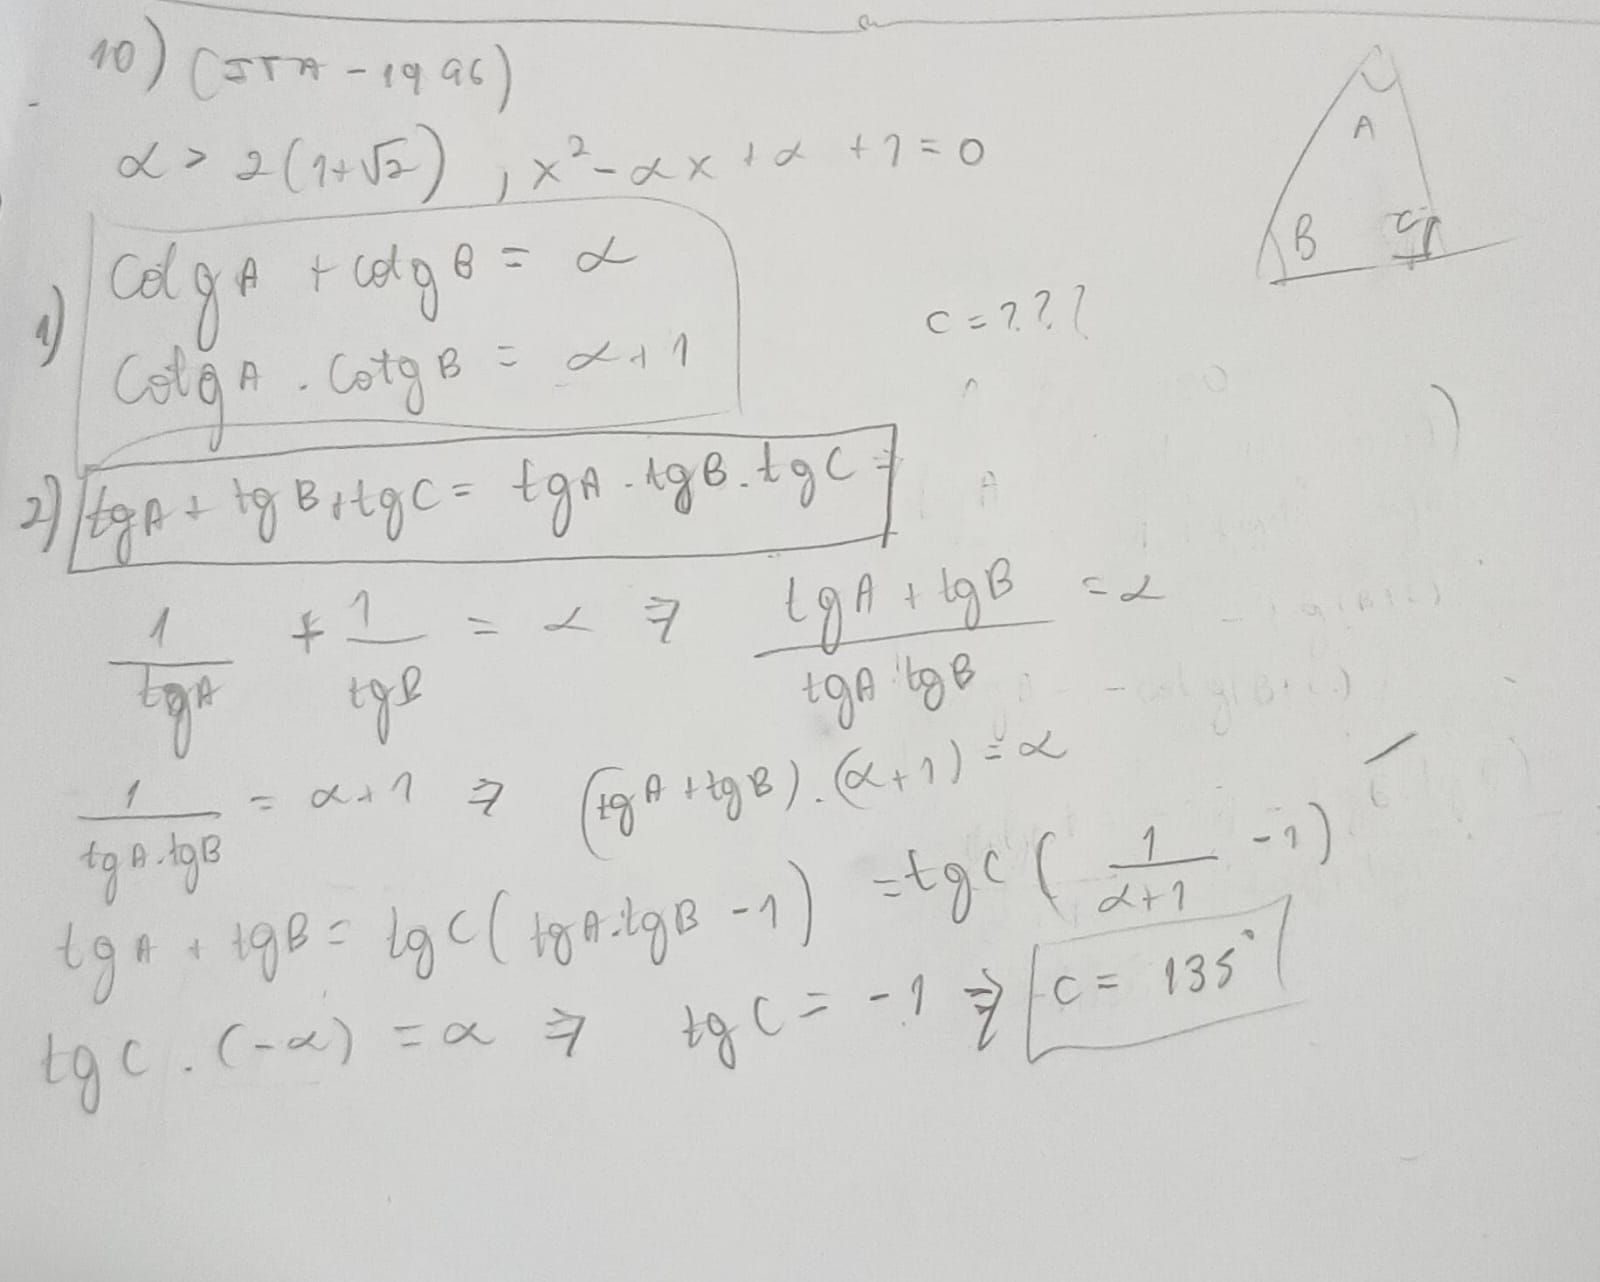 10) (ITA - 1996)
α > 2(1+√2) , x² - αx + α + 1 = 0
A
B
C
1) cotg A + cotg B = α
C = ???
cotg A . cotg B = α + 1
2) tg A + tg B + tg C = tg A . tg B . tg C
1/tg A + 1/tg B = α ⇒ (tg A + tg B)/(tg A . tg B) = α
1/(tg A . tg B) = α + 1 ⇒ (tg A + tg B) . (α + 1) = α
tg A + tg B = tg C ( tg A . tg B - 1 ) = tg C ( 1/(α+1) - 1 )
tg C . (-α) = α ⇒ tg C = -1 ⇒ C = 135°